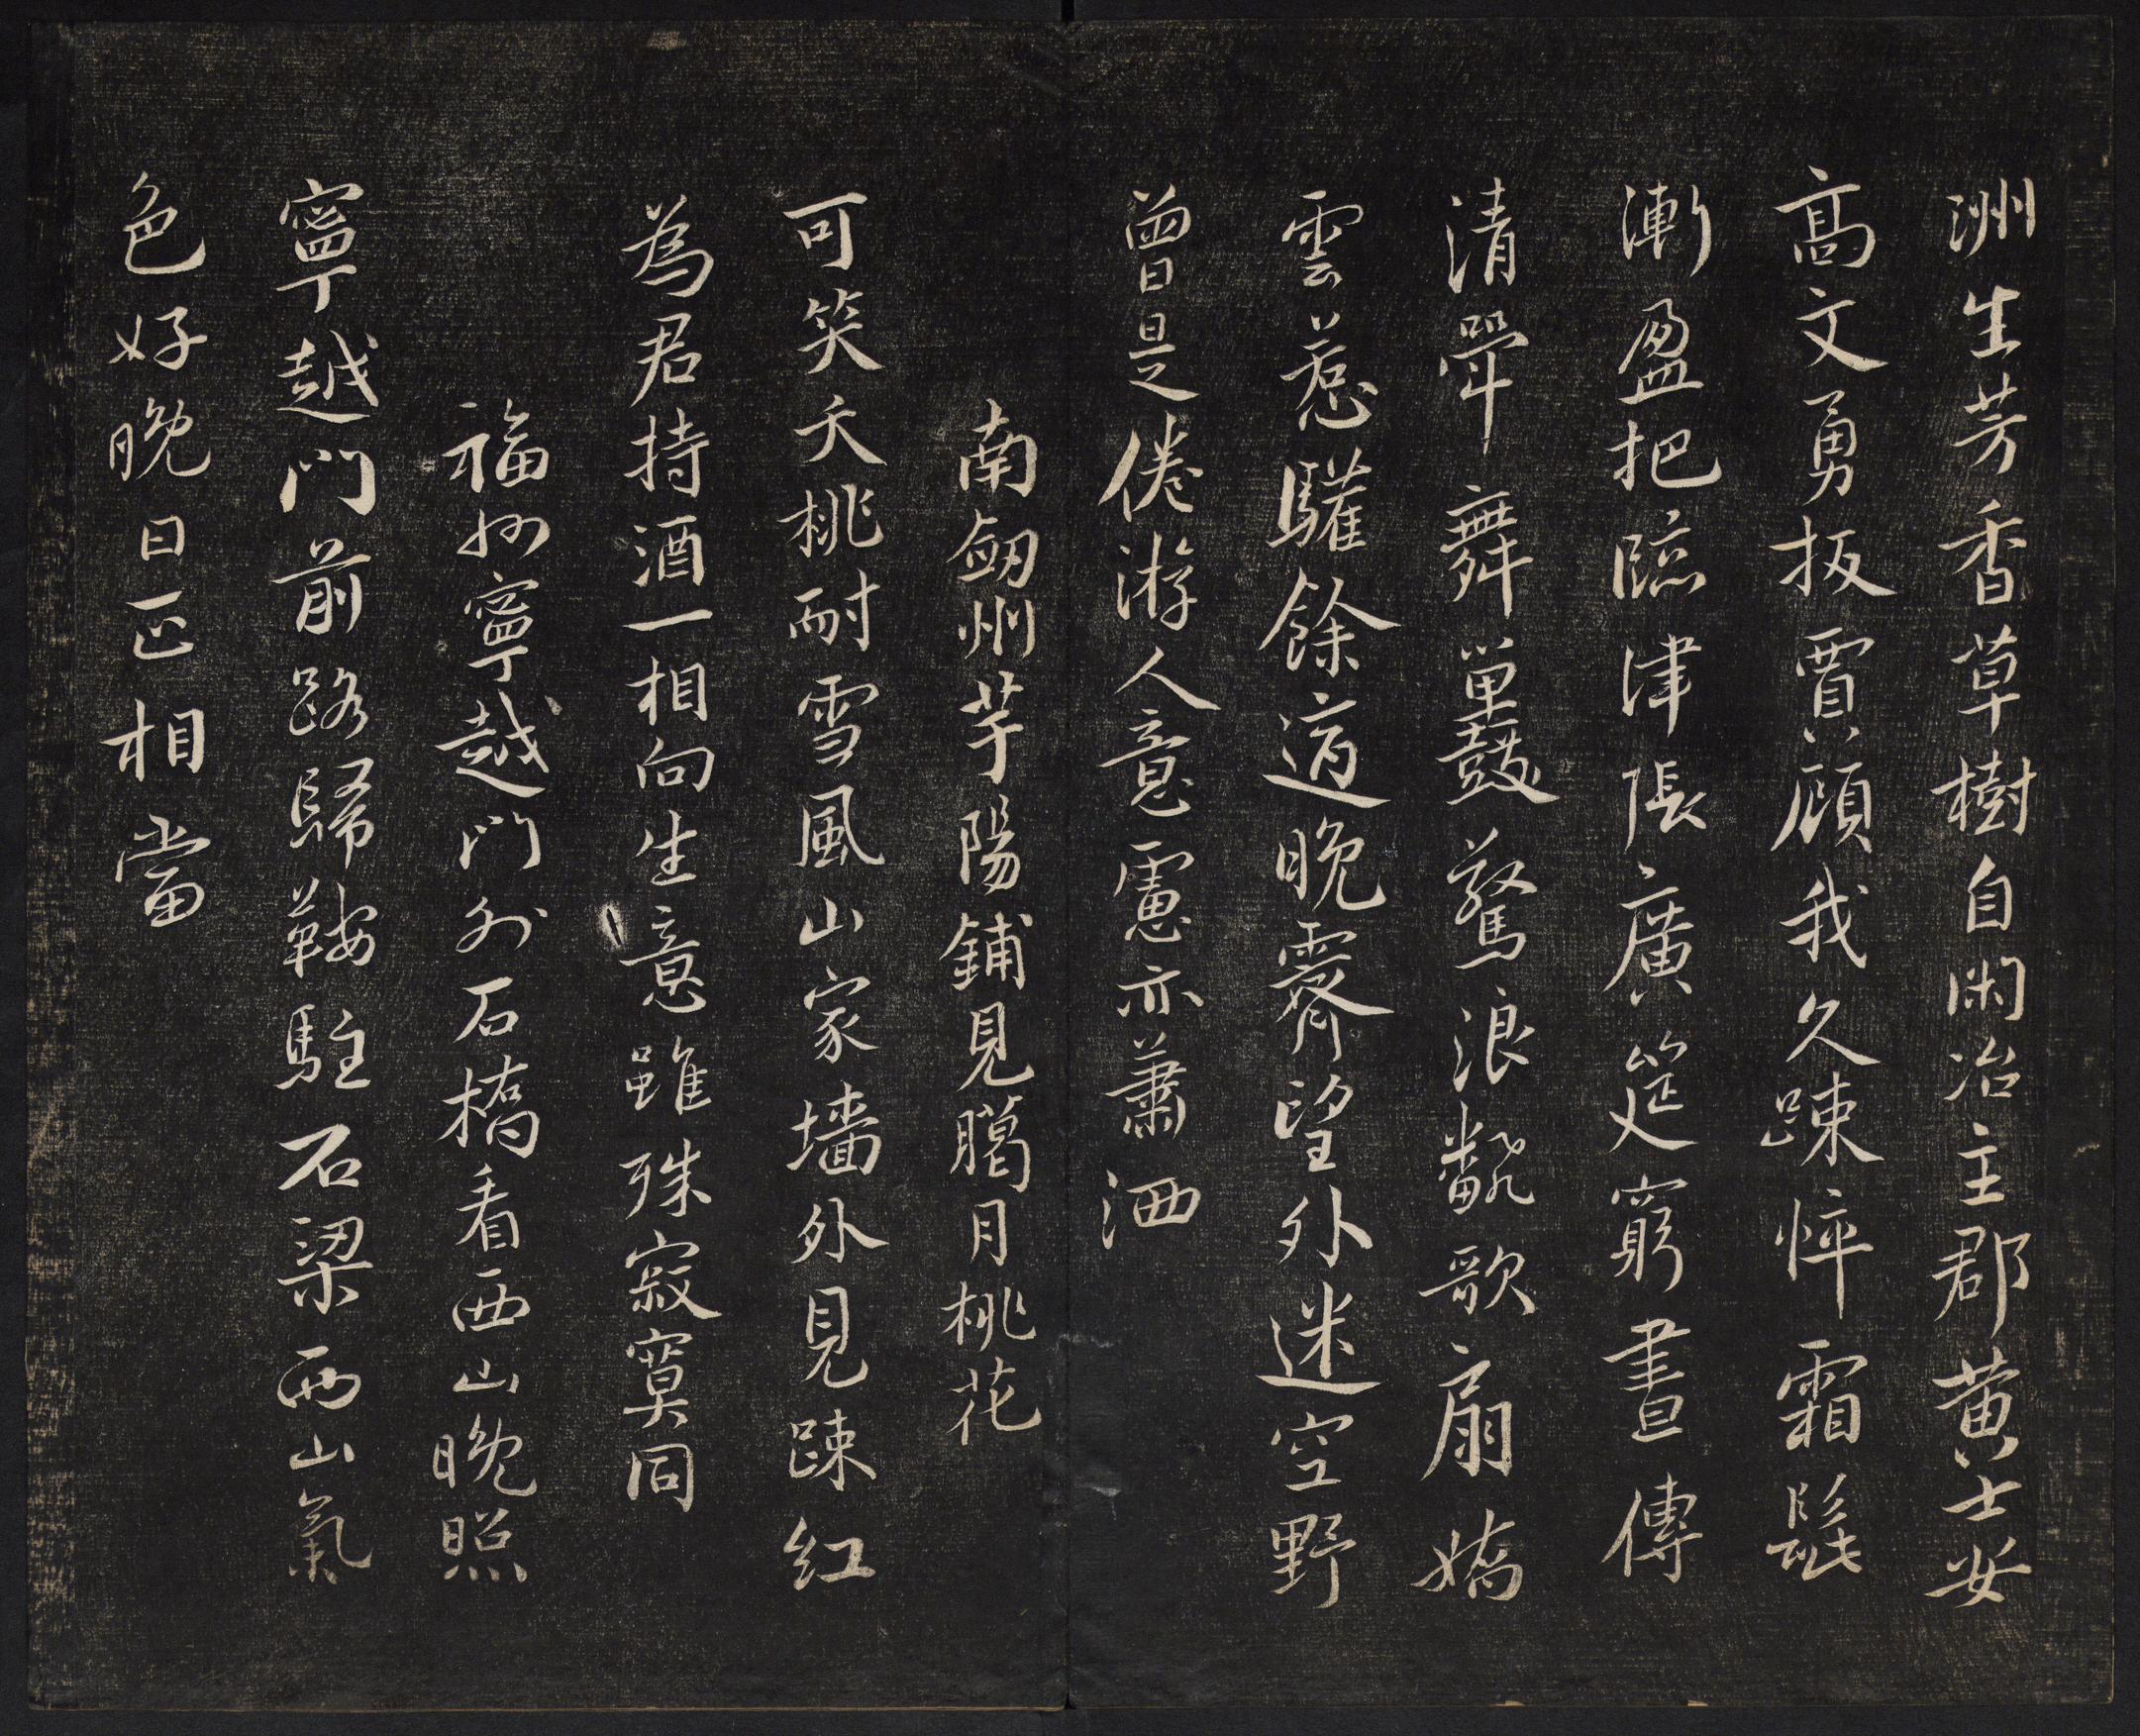 洲生芳香草樹自閑冶主郡黃士安
高文勇扳賈顧我久踈悴霜髭
漸盈把臨津張廣筵窮晝傳
清斝舞罼鼓驚浪飜歌扇嬌
雲惹驩餘適晚霽望外迷空野
曾是倦游人意慮亦蕭洒
南劒州芋陽鋪見臈月桃花
可笑夭桃耐雪風山家墻外見踈紅
為君持酒一相向生意雖殊寂寞同
福州寧越門外石橋看西山晚照
寧越門前路歸鞍駐石梁西山氣
色好晚日正相當